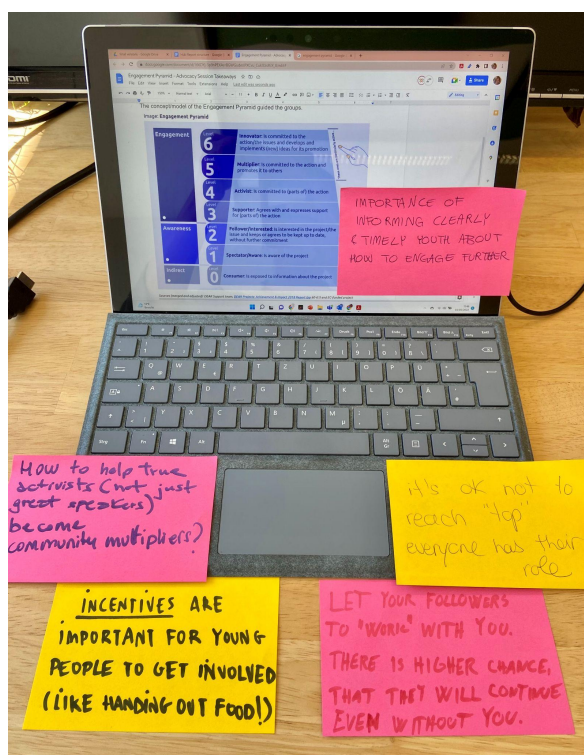 Engagement Pyramid - Advocacy Session Takeaways
File Edit View Insert Format Tools Extensions Help
Share
The concept/model of the Engagement Pyramid guided the groups.
Image: Engagement Pyramid
Engagement
Level
6
Innovator: is committed to the
action/the issues and develops and
implements (new) ideas for its promotion
Level
5
Multiplier: is committed to the action and
promotes it to others
Level
4
Activist: is committed to (parts of) the action
Level
3
Supporter: Agrees with and expresses support
for (parts of) the action
Awareness
Level
2
Follower/interested: is interested in the project/the
issue and keeps or agrees to be kept up to date,
without further commitment
Level
1
Spectator/Aware: is aware of the project
Indirect
Level
0
Consumer: is exposed to information about the project
IMPORTANCE OF
INFORMING CLEARLY
& TIMELY YOUTH ABOUT
HOW TO ENGAGE FURTHER
Q W E R T Z U I O P Ü
A S D F G H J K L Ö Ä
Y X C V B N M
Strg Fn Alt Alt Gr
HOW to help true
activists (not just
great speakers)
become
community multipliers?
it's ok not to
reach "top"
everyone has their
role
INCENTIVES ARE
IMPORTANT FOR YOUNG
PEOPLE TO GET INVOLVED
(LIKE HANDING OUT FOOD!)
LET YOUR FOLLOWERS
TO "WORK" WITH YOU.
THERE IS HIGHER CHANCE,
THAT THEY WILL CONTINUE
EVEN WITHOUT YOU.